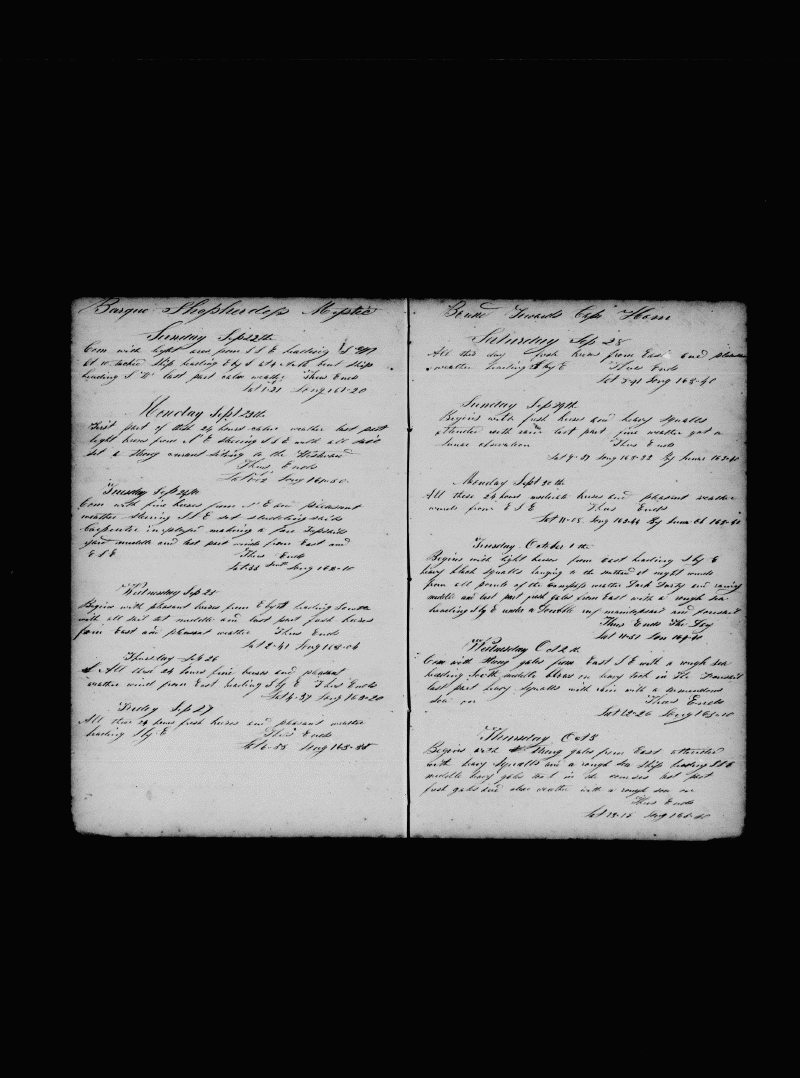 Barque Shepherdess Mystic
Sunday Sep 22th
Com with light airs from S S E heading S W
At 10 tacked Ship heading E by S at 4 A M tacked Ship
heading S W last part calm weather Thus Ends
Lat 1-31 Long 161-20
Monday Sept 23th
First part of this 24 hours calm weather last part
light breses from N E stering S S E with all sail
set a strong current seting to the Westward
Thus Ends
Long 161-50
Tuesday Sep 24th
Com with fine breses from N E and pleasant
weather stering S S E set studding sails
Carpenter employed making a fore Topsail
yard middle and last part winds from East and
E S E Thus Ends
Long 162-10
Wednesday Sep 25
Begins with pleasant breses from E by N heading South
with all sail set middle and last part fresh breses
from East and pleasant weather Thus Ends
Lat 2-41 Long 163-04
Thursday Sep 26
All this 24 hours fine breses and pleasant
weather wind from East heading S by E Thus Ends
Lat 4-37 Long 163-20
Friday Sep 27
All this 24 hours fresh breses and pleasant weather
heading S by E Thus Ends
Lat 6-55 Long 163-38
Bound Towards Cape Horn
Saturday Sep 28
All this day fresh breses from East and pleasant
weather heading S by E Thus Ends
Long 163-40
Sunday Sep 29th
Begins with fresh breses and heavy squalls
attended with rain last part fine weather got a
lunar observation Thus Ends
Long 163-22 By lunar
Monday Sept 30th
All these 24 hours moderate breses and pleasant weather
winds from E S E Thus Ends
Lat 11-05 Long 163-44 By lunar
Tuesday October 1th
Begins with light breses from East heading S by E
heavy black squalls hanging to the southard at night winds
from all points of the Compass weather Dark Dirty and rainy
middle and last part fresh gales from East with a rough sea
heading S by E under a Double reef mainspeacer and foresail
Thus Ends This Day
Lat 11-51 Lon 164-40
Wednesday Oct 2th
Com with strong gales from East S E with a rough sea
heading South middle blows on heavy took in the Foresail
last part heavy squalls with rain with a tremendous
sea on Thus Ends
Lat 12-26 Long 165-10
Thursday Oct 3
Begins with strong gales from East attended
with heavy squalls and a rough sea Ship heading S S E
middle heavy gales took in the foresail last part
fresh gales and clear weather with a rough sea on
Thus Ends
Lat 13-16 Long 166-40